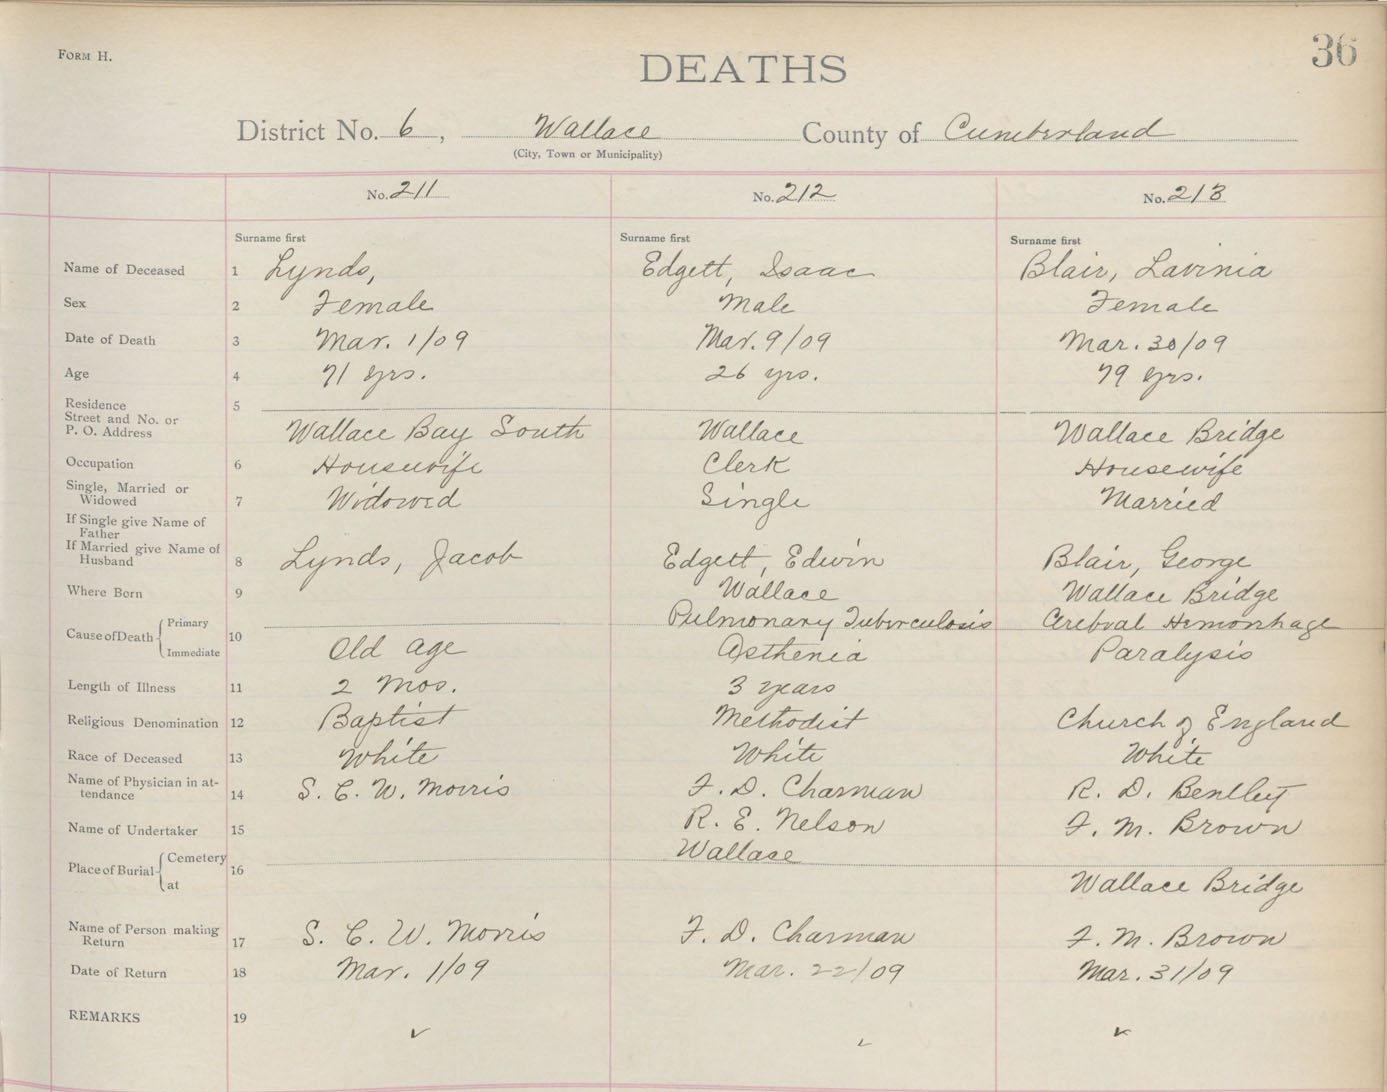 FORM H.
36
DEATHS
District No. 6, Wallace County of Cumberland
(City, Town or Municipality)
No. 211 No. 212 No. 213
Surname first Surname first Surname first
Name of Deceased 1 Lynds, Edgett, Isaac Blair, Lavinia
Sex 2 Female Male Female
Date of Death 3 Mar. 1/09 Mar. 9/09 Mar. 30/09
Age 4 71 yrs. 26 yrs. 79 yrs.
Residence 5
Street and No. or
P. O. Address Wallace Bay South Wallace Wallace Bridge
Occupation 6 Housewife Clerk Housewife
Single, Married or
Widowed 7 Widowed Single Married
If Single give Name of
Father
If Married give Name of
Husband 8 Lynds, Jacob Edgett, Edwin Blair, George
Where Born 9 Wallace Wallace Bridge
Primary Pulmonary Tuberculosis Cerebral Hemorrhage
Cause of Death 10
Immediate Old age Asthenia Paralysis
Length of Illness 11 2 Mos. 3 years
Religious Denomination 12 Baptist Methodist Church of England
Race of Deceased 13 White White White
Name of Physician in at-
tendance 14 S. C. W. Morris F. D. Charman R. D. Bentley
Name of Undertaker 15 R. E. Nelson F. M. Brown
Cemetery Wallace
Place of Burial 16
at Wallace Bridge
Name of Person making
Return 17 S. C. W. Morris F. D. Charman F. M. Brown
Date of Return 18 Mar. 1/09 Mar. 22/09 Mar. 31/09
REMARKS 19